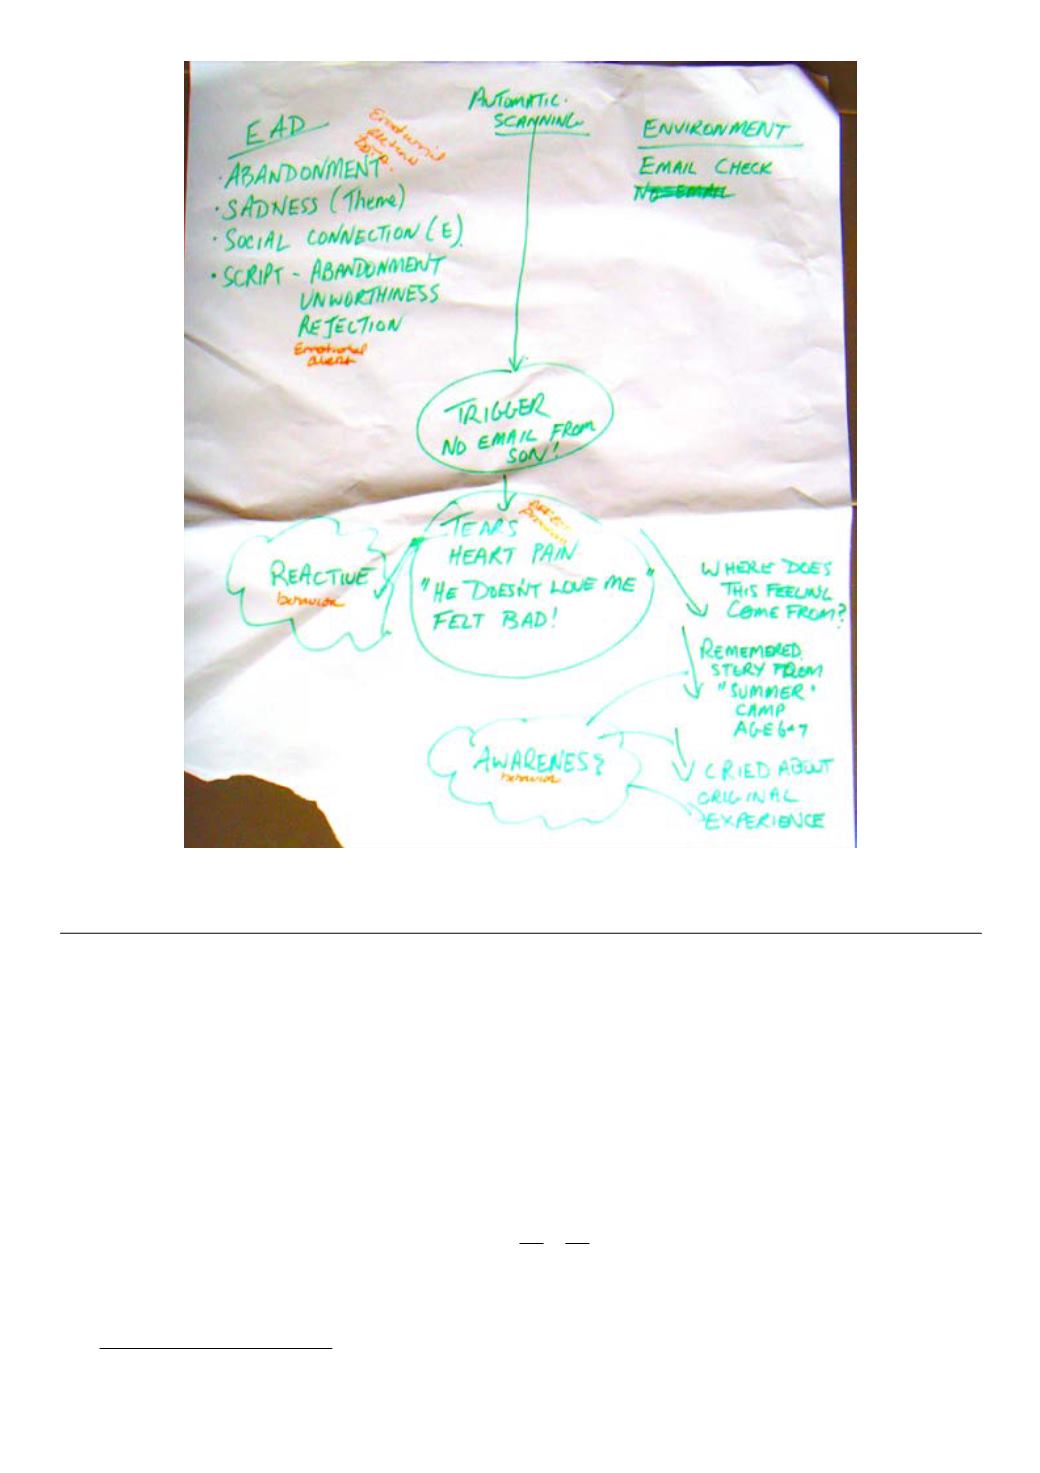 AUTOMATIC
SCANNING
EAD
Emotional
ABANDONMENT
SADNESS (Theme)
SOCIAL CONNECTION (E)
SCRIPT - ABANDONMENT
UNWORTHINESS
REJECTION
Emotional
alert
ENVIRONMENT
EMAIL CHECK
NO EMAIL
TRIGGER
NO EMAIL FROM
SON!
TEARS
HEART PAIN
"HE DOESN'T LOVE ME"
FELT BAD!
REACTIVE
behavior
WHERE DOES
THIS FEELING
COME FROM?
REMEMERED
STORY FROM
"SUMMER"
CAMP
AGE 6-7
AWARENESS
behavior
CRIED ABOUT
ORIGINAL
EXPERIENCE